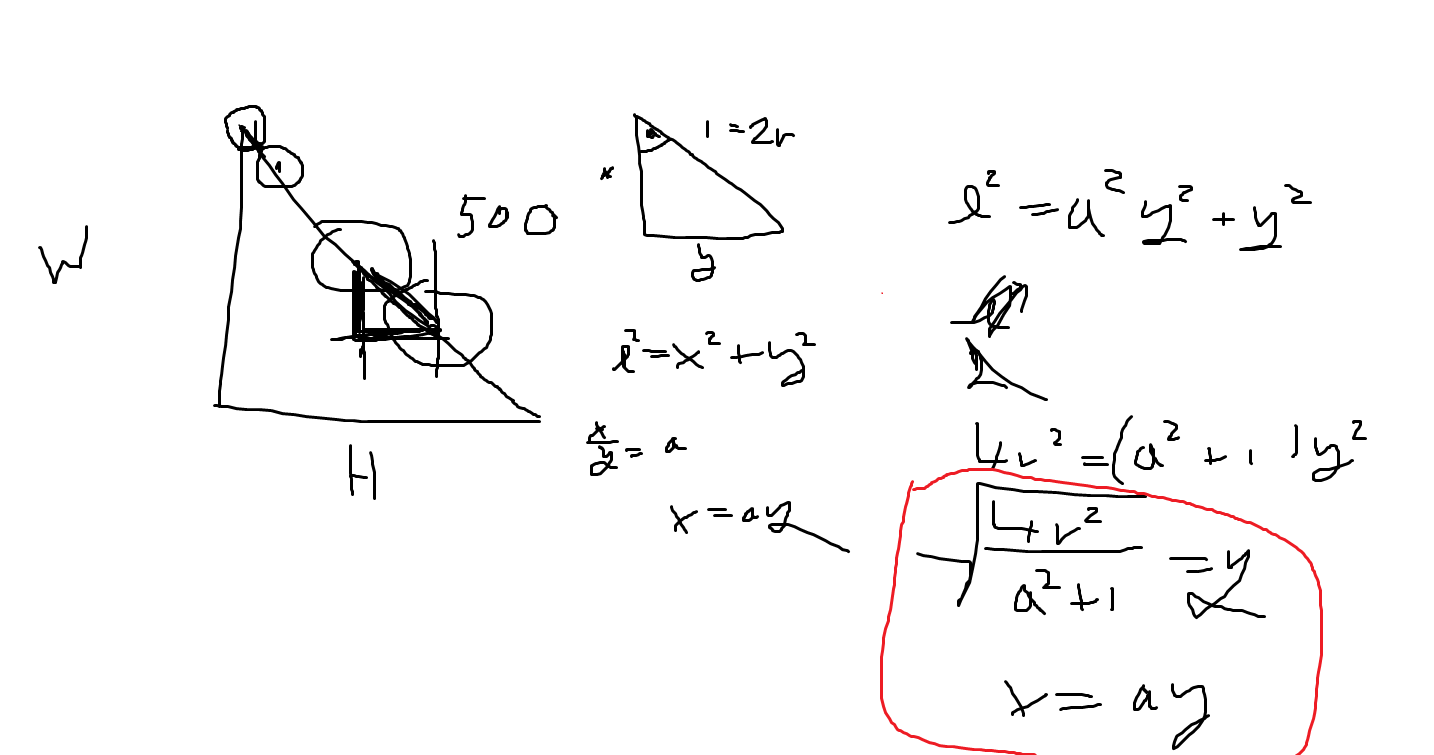 W
H
500
l = 2r
x
y
l² = x² + y²
x/y = a
x = ay
l² = a² y² + y²
4r² = (a² + 1)y²
√(4r²/(a² + 1)) = y
x = ay